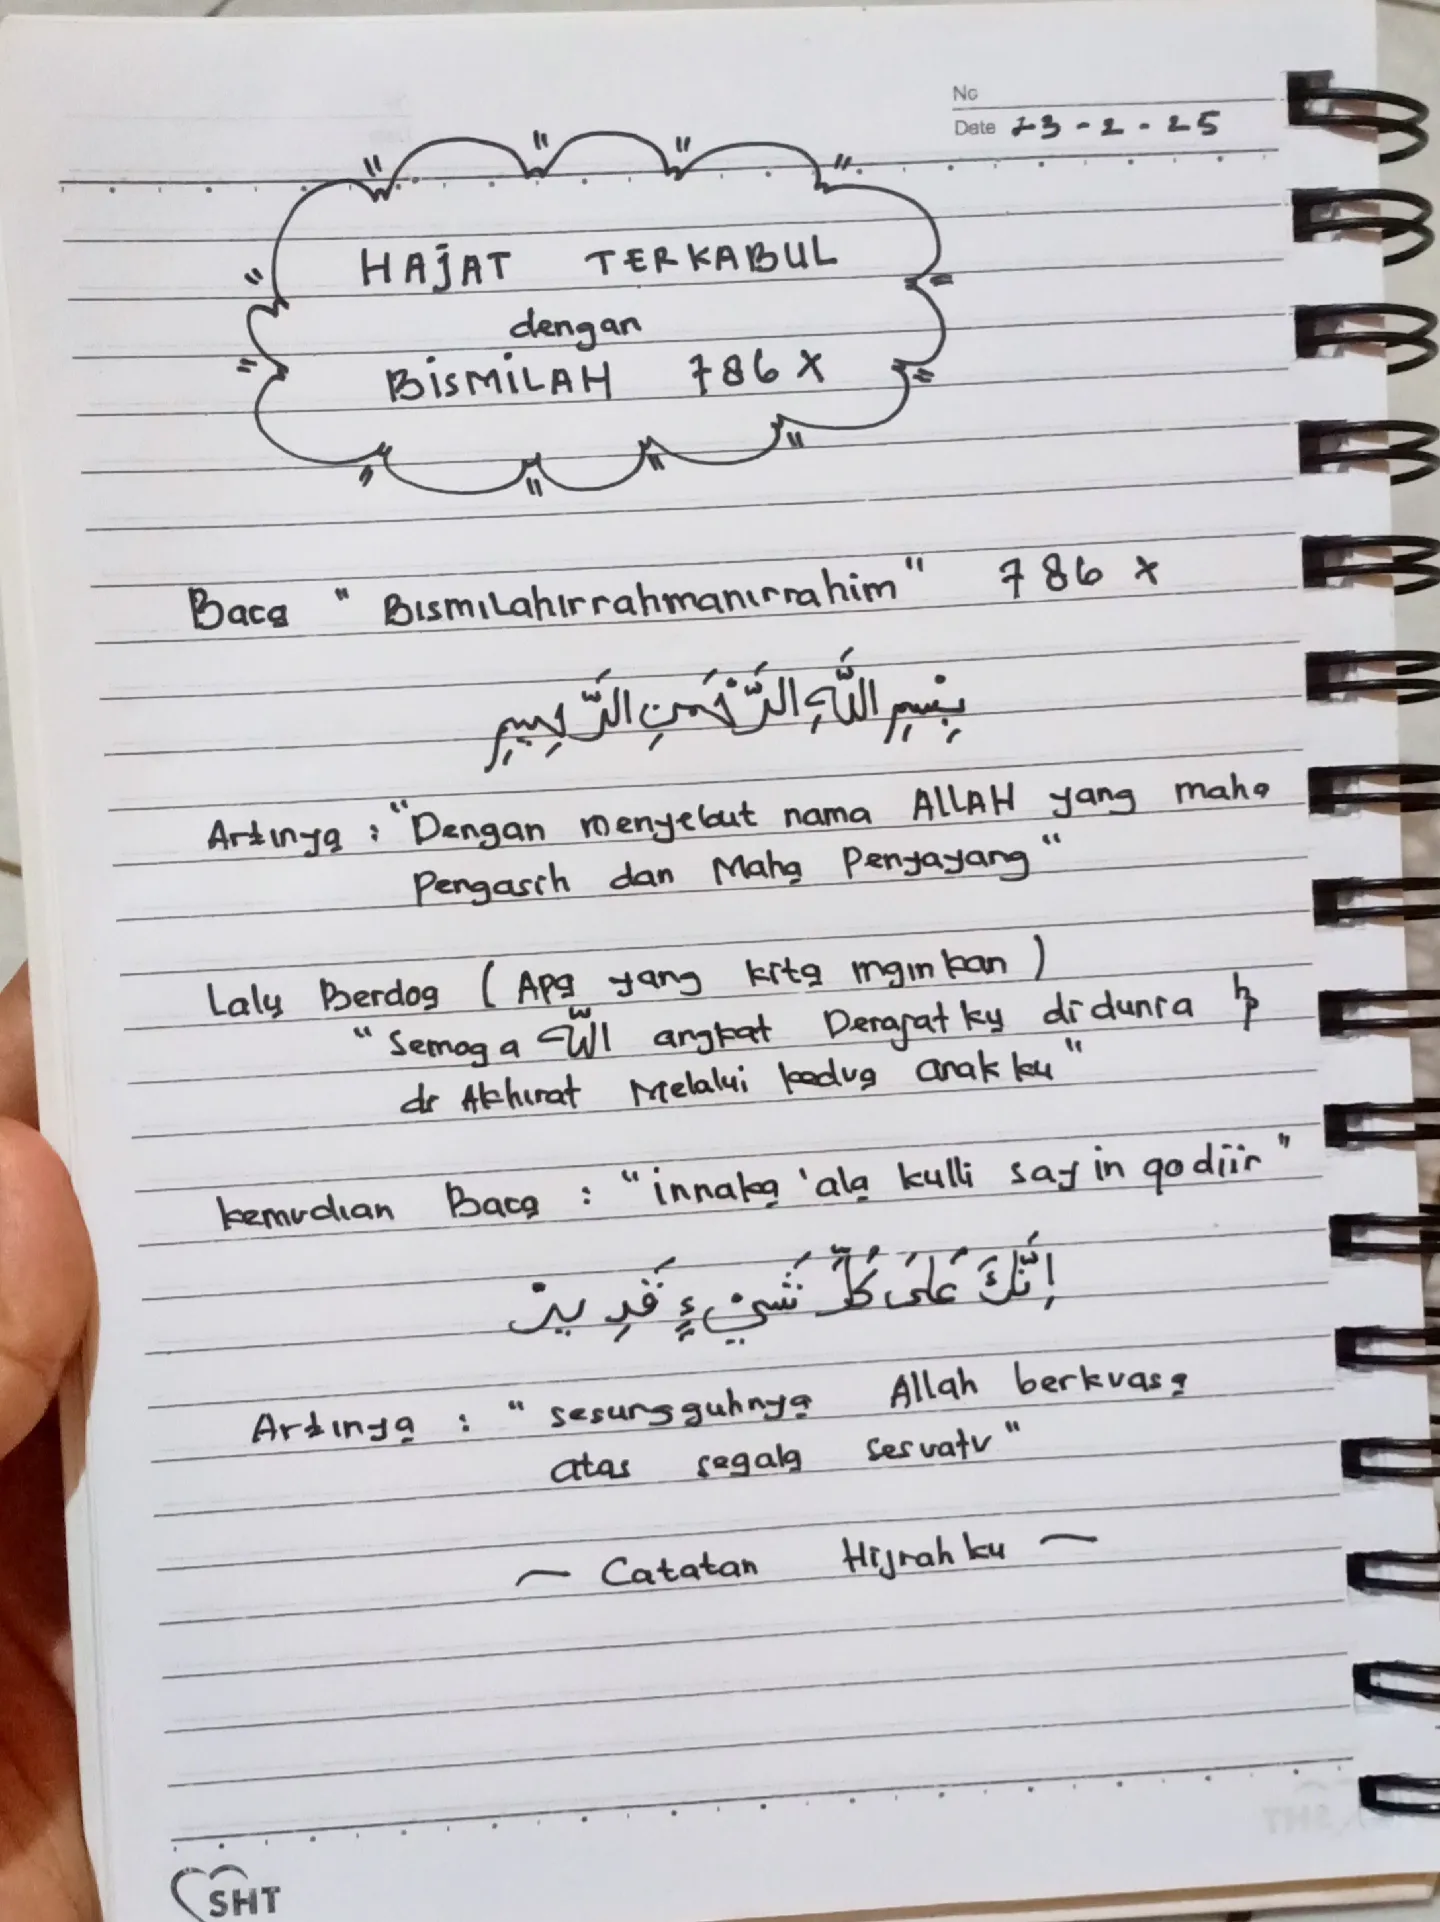 No
Date 23-2-25
HAJAT TERKABUL
dengan
BISMILAH 786 x
Baca "BismiLahirrahmanirrahim" 786 x
بِسْمِ اللَّهِ الرَّحْمَنِ الرَّحِيمِ
Artinya : "Dengan menyebut nama ALLAH yang maha
Pengasih dan Maha Penyayang"
Lalu Berdoa (Apa yang kita inginkan)
"Semoga اللّه angkat Derajatku di dunia &
di Akhirat Melalui kedua anakku"
kemudian Baca : "innaka 'ala kulli sayin qodiir"
اِنَّكَ عَلَى كُلِّ شَيْءٍ قَدِيرْ
Artinya : "sesungguhnya Allah berkuasa
atas segala sesuatu"
~ Catatan Hijrahku ~
SHT